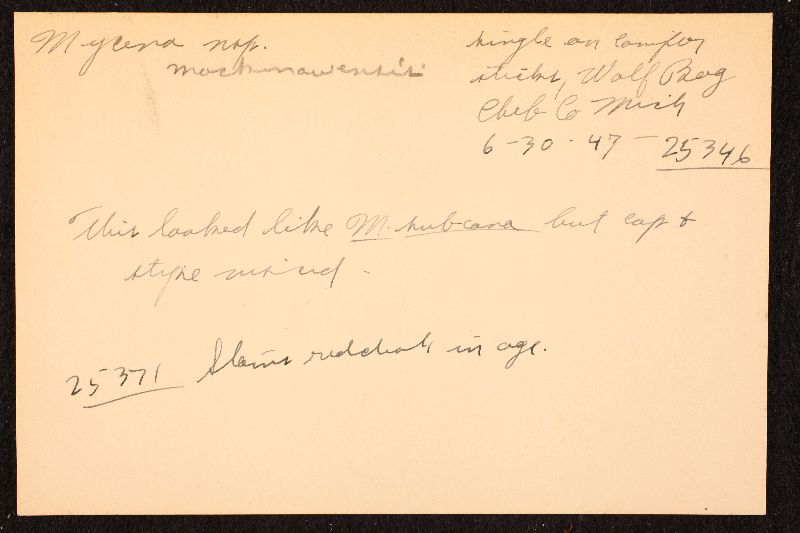 Mycena nsp.
mackinawensis
single on conifer
sticks, Wolf Bog
Cheb Co Mich
6-30-47 - 25346
This looked like M. subcana but cap &
stipe viscid -
25371 Stains reddish in age.